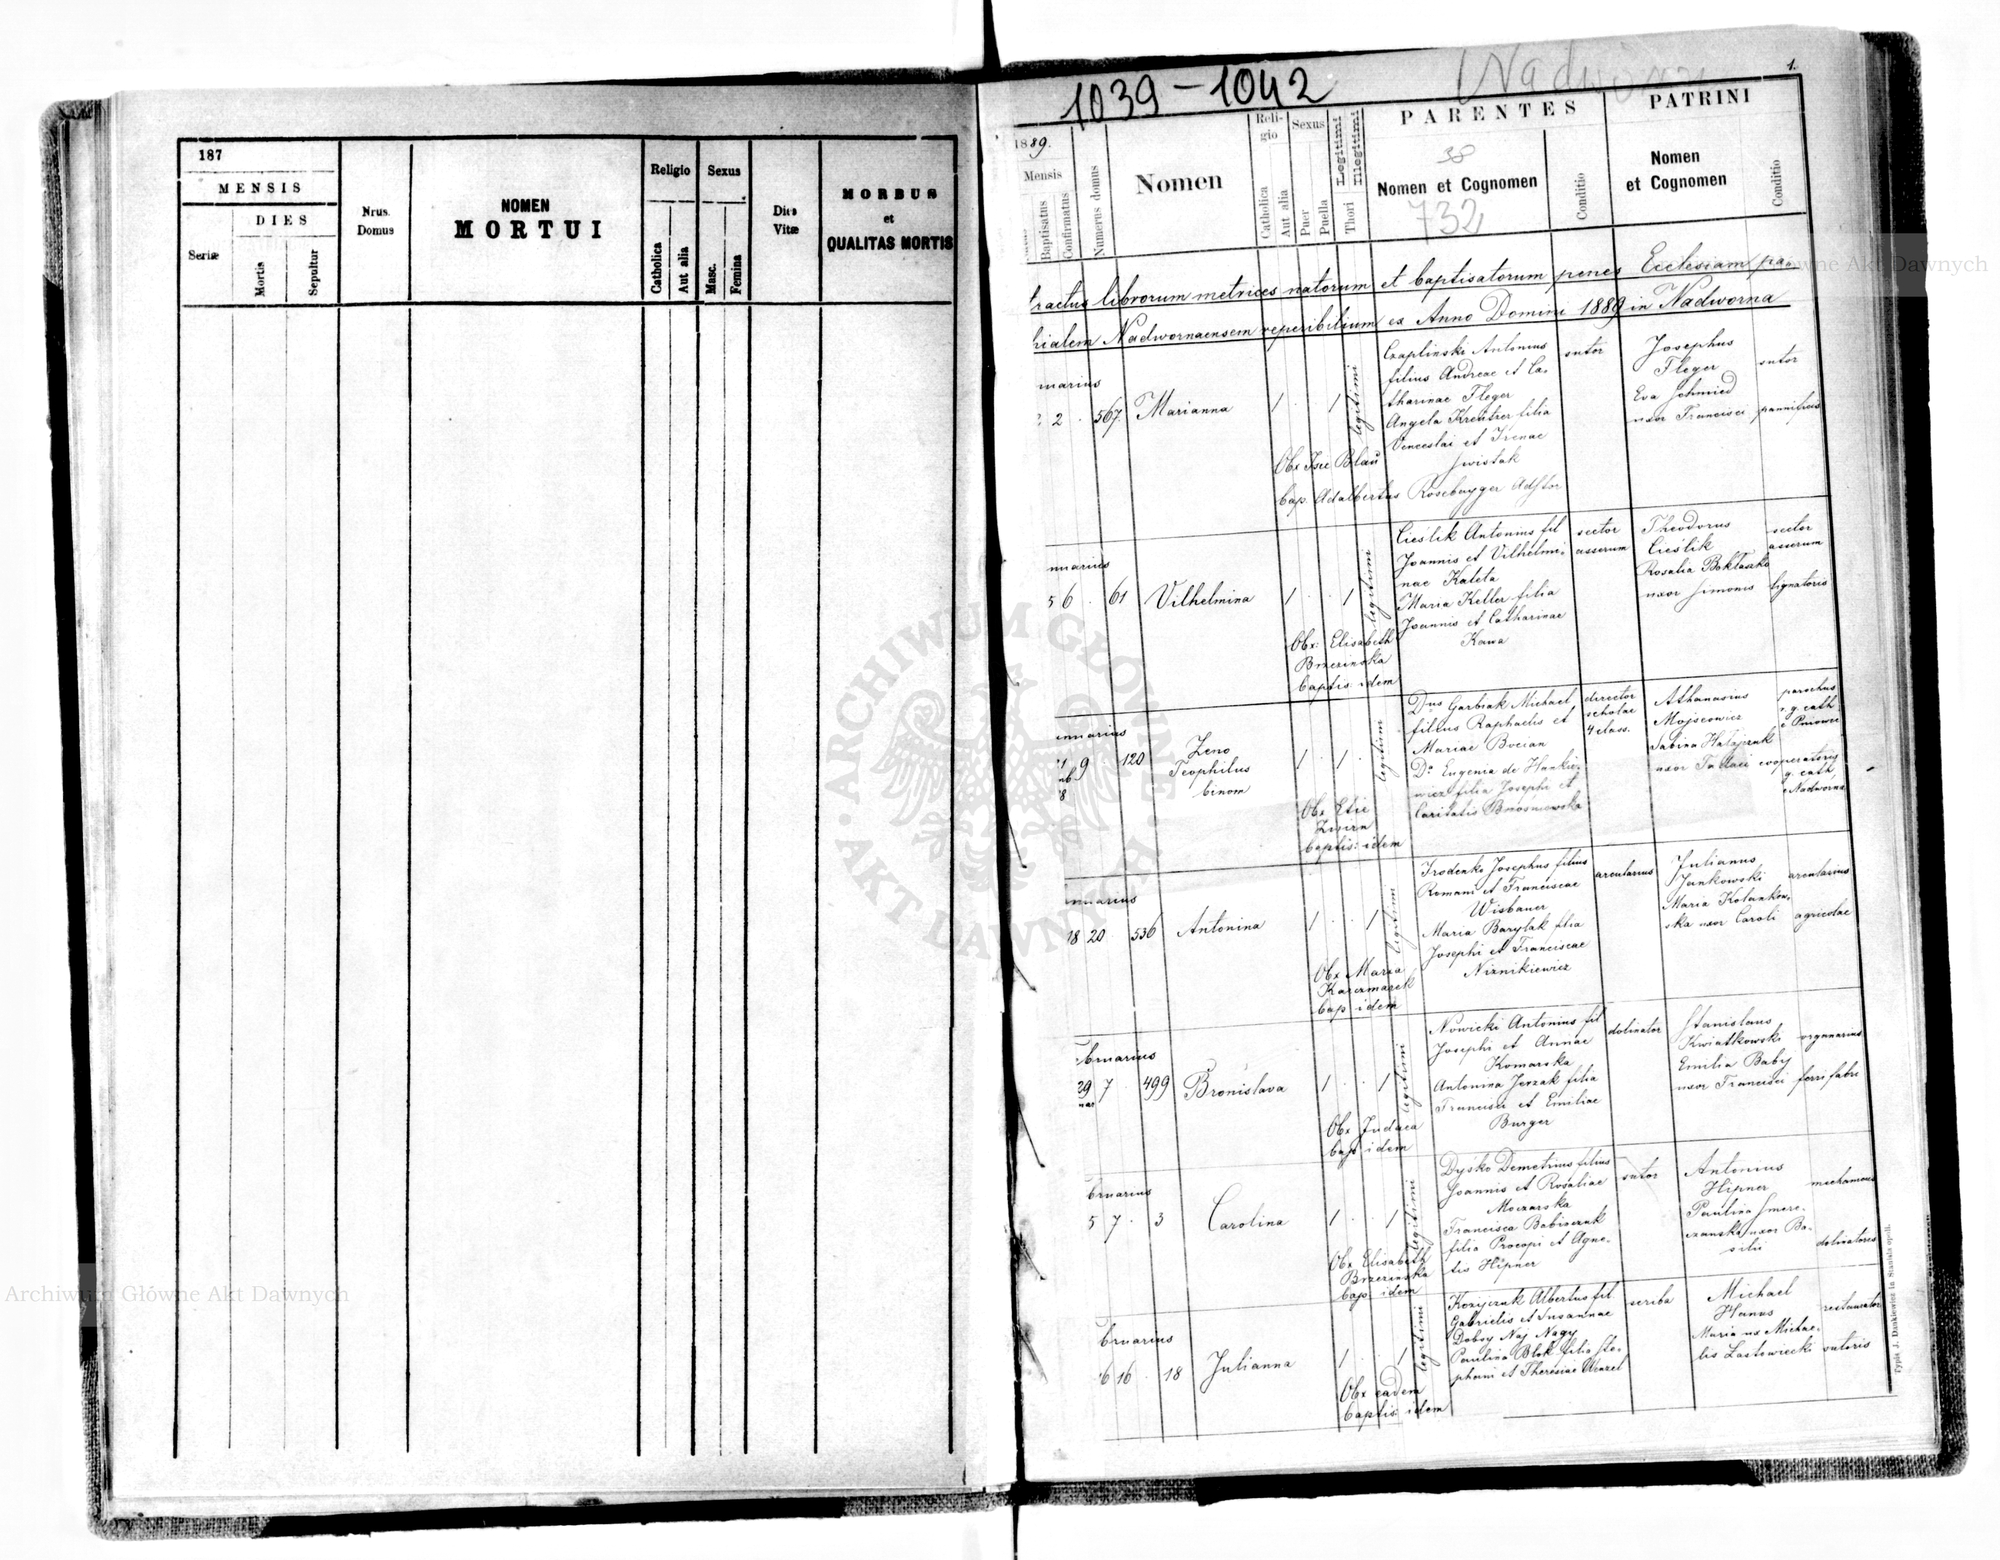 187
MENSIS
DIES
Seriæ
Mortis
Sepultur
Nrus.
Domus
NOMEN
MORTUI
Religio
Catholica
Aut alia
Sexus
Masc.
Femina
Dies
Vitæ
MORBUS
et
QUALITAS MORTIS
1039-1042
Nadworna
1.
1889.
Mensis
Baptisatus
Confirmatus
Numerus domus
Nomen
Reli-
gio
Catholica
Aut alia
Sexus
Puer
Puella
Legitimi
Illegitimi
Thori
PARENTES
38
Nomen et Cognomen
732
Conditio
PATRINI
Nomen
et Cognomen
Conditio
tractus librorum metrices natorum et baptisatorum penes Ecclesiam pa-
hialem Nadwornaensem reperibilium ex Anno Domini 1889 in Nadworna
nuarius
2 567. Marianna 1 1 legitimi
Czaplinski Antonius
filius Andreae et Ca-
tharinae Fleger
Angela Kreutzer filia
Venceslai et Irenae
Swistak
sutor
Josephus
Fleger
Eva Schmied
uxor Francisci
sutor
pannificis
Obx Isce Blau
Cap. Adalbertus Rosebayger Adstor
nuarius
5 6 61 Vilhelmina 1 1 legitimi
Cieślik Antonius fil
Joannis et Vilhelmi-
nae Kaleta
Maria Keller filia
Joannis et Catharinae
Kawa
sector
asserum
Theodorus
Cieślik
Rosalia Boktaszko
uxor Simonis
sector
asserum
lignatoris
Obx: Elisabeth
Brzezinska
baptis: idem
nuarius
9 120 Zeno
Teophilus
binom
1 1 legitimi
Dnus Garbiak Michael
filius Raphaelis et
Mariae Bocian
Da Eugenia de Hankie-
wicz filia Josephi et
Caritatis Brosniowska
director
scholae
4 class.
Athanasius
Mojseowicz
Sabina Hatajczuk
uxor
parochus
r. g. cath.
e Pniowie
cooperatoris
g. cath.
e Nadworna
Obx Etie
Zwirn
baptis: idem
nuarius
18 20 536 Antonina 1 1 legitimi
Frodenko Josephus filius
Romani et Franciscae
Wisbauer
Maria Barylak filia
Josephi et Franciscae
Niznikiewicz
arcularius
Julianus
Jankowski
Maria Kolankow-
ska uxor Caroli
arcularius
agricolae
Obx Maria
Karczmarek
bap idem
bruarius
29 7 499 Bronislava 1 1 legitimi
Nowicki Antonius fil
Josephi et Annae
Komarska
Antonina Jerzak filia
Francisci et Emiliae
Burger
dolinator
Stanislaus
Kwiatkowski
Emilia Baby
uxor Francisci
organarius
ferri fabri
Obx Judaea
bap idem
bruarius
5 7 3 Carolina 1 1 legitimi
Dyśko Demetrius filius
Joannis et Rosaliae
Moczarska
Francisca Babiczuk
filia Procopi et Agne-
tis Hipner
sutor
Antonius
Hipner
Paulina Smere-
czanska uxor Ba-
silii
mechanicus
dolinatoris
Obx Elisabeth
Brzezinska
bap idem
bruarius
6 16 18 Julianna 1 1 legitimi
Kozyczuk Albertus fil
Gabrielis et Susannae
Dobsy Naj Nagy
Paulina Blok filia Ste-
phani et Theresiae Wenzel
scriba
Michael
Hanus
Maria ux Michae-
lis Lastowiecki
restaurator
sutoris
Obx eadem
baptis: idem
Typis J. Dankiewicz in Stanislaopoli.
ARCHIWUM GŁÓWNE
AKT DAWNYCH
Archiwum Główne Akt Dawnych
Archiwum Główne Akt Dawnych